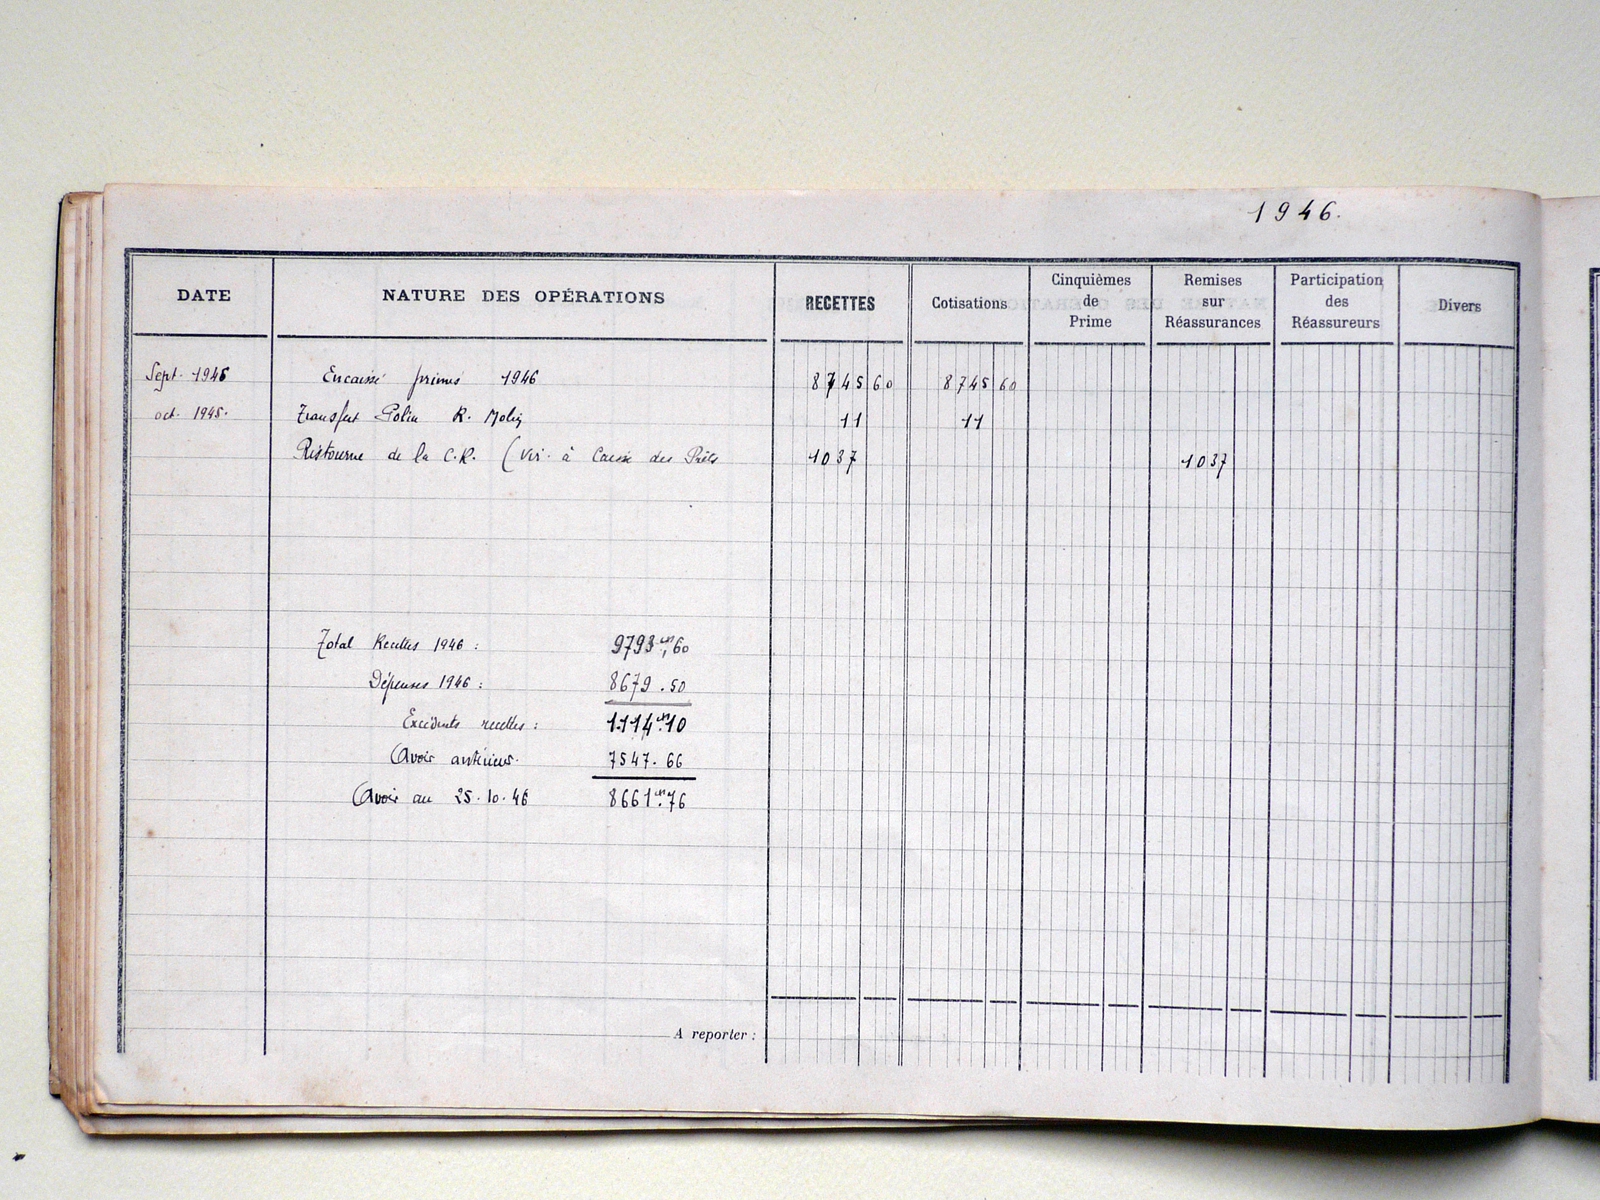 1946.
DATE NATURE DES OPÉRATIONS RECETTES Cotisations Cinquièmes de Prime Remises sur Réassurances Participation des Réassureurs Divers
Sept. 1946 Encaissé primes 1946 8745 60 8745 60
oct. 1945. Transfert R. 11 11
Ristourne de la C.R. (Vir. à Caisse des Prêts 1037 1037
Total Recettes 1946 : 9793, 60
Dépenses 1946 : 8679.50
Excédents recettes : 1114.10
Avoir antérieur. 7547.66
Avoir au 25.10.46 8661.76
A reporter :